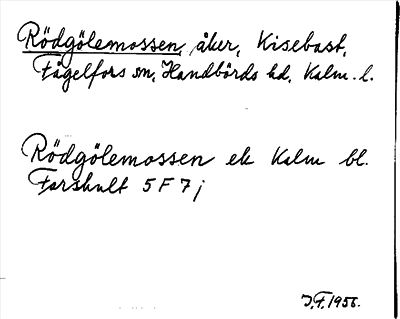 Rödgölemossen, åker, Kisebast,
Fågelfors sn, Handbörds hd, Kalm. l.
Rödgölemossen ek Kalm bl.
Farshult 5 F 7 j
J.F. 1956.